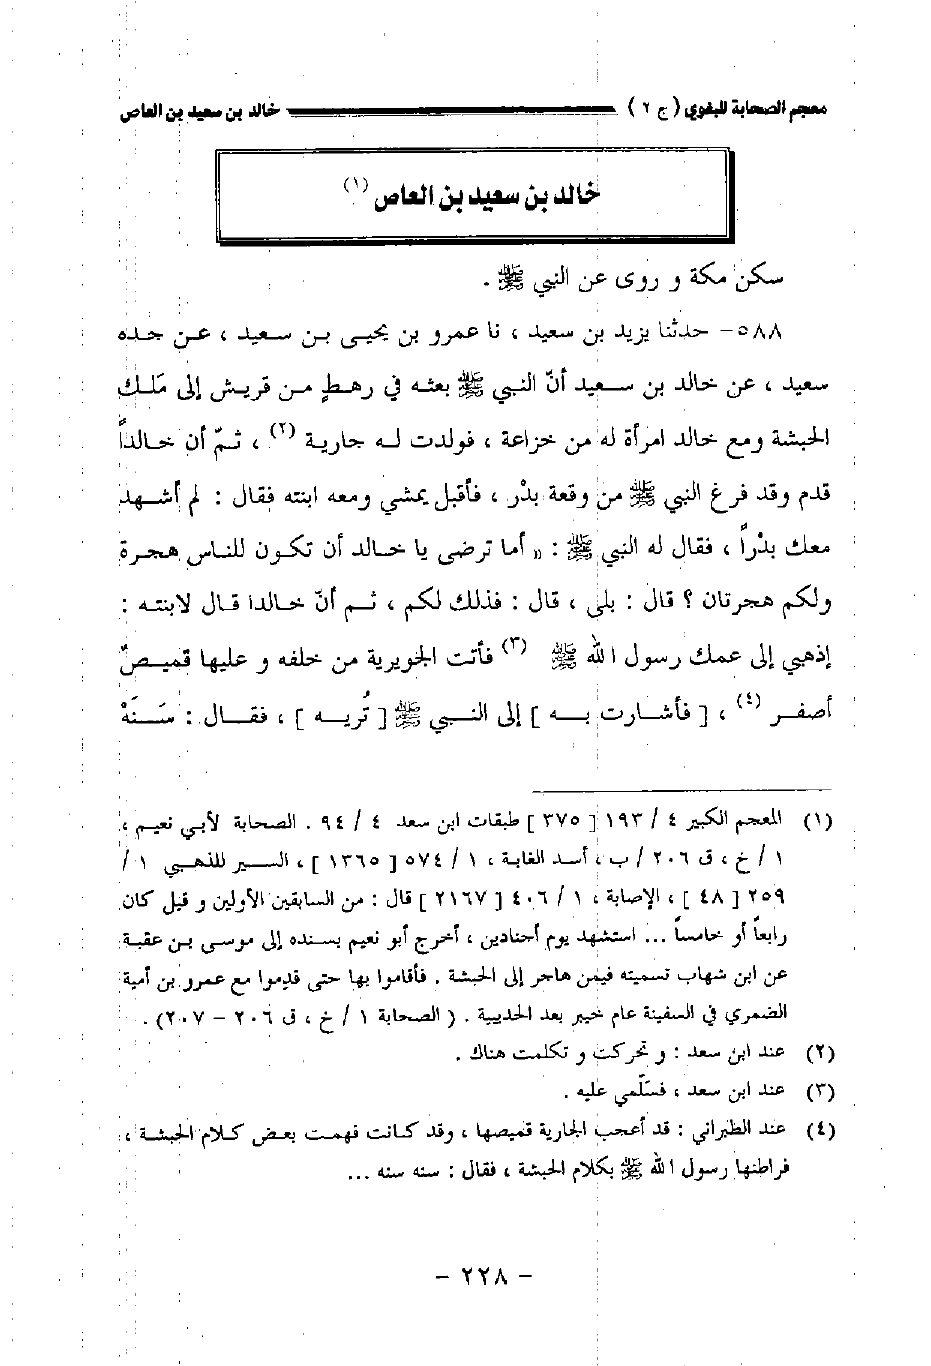 معجم الصحابة للبغوي ( ج ٢ ) خالد بن سعيد بن العاص
خالد بن سعيد بن العاص (١)
سكن مكة و روى عن النبي ﷺ .
٥٨٨- حدثنا يزيد بن سعيد ، نا عمرو بن يحيى بن سعيد ، عن جده
سعيد ، عن خالد بن سعيد أنّ النبي ﷺ بعثه في رهطٍ من قريش إلى مَلك
الحبشة ومع خالد امرأة له من خزاعة ، فولدت له جارية (٢) ، ثمّ أن خالداً
قدم وقد فرغ النبي ﷺ من وقعة بدْر ، فأقبل يمشي ومعه ابنته فقال : لم أشهد
معك بدْراً ، فقال له النبي ﷺ : « أما ترضى يا خالد أن تكون للناس هجرة
ولكم هجرتان ؟ قال : بلى ، قال : فذلك لكم ، ثم أنّ خالدا قال لابنته :
إذهبي إلى عمك رسول الله ﷺ (٣) فأتت الجويرية من خلفه و عليها قميصٌ
أصفر (٤) ، [ فأشارت به ] إلى النبي ﷺ [ تُريه ] ، فقال : سَنَهْ
(١) المعجم الكبير ٤ / ١٩٣ [ ٣٧٥ ] طبقات ابن سعد ٤ / ٩٤ . الصحابة لأبي نعيم ،
١ / خ ، ق ٢٠٦ / ب ، أسد الغابة ، ١ / ٥٧٤ [ ١٣٦٥ ] ، السير للذهبي ١ /
٢٥٩ [ ٤٨ ] ، الإصابة ، ١ / ٤٠٦ [ ٢١٦٧ ] قال : من السابقين الأولين و قيل كان
رابعاً أو خامساً ... استشهد يوم أجنادين ، أخرج أبو نعيم بسنده إلى موسى بن عقبة
عن ابن شهاب تسميته فيمن هاجر إلى الحبشة . فأقاموا بها حتى قدموا مع عمرو بن أمية
الضمري في السفينة عام خيبر بعد الحديبية . ( الصحابة ١ / خ ، ق ٢٠٦ - ٢٠٧) .
(٢) عند ابن سعد : و تحركت و تكلمت هناك .
(٣) عند ابن سعد ، فسَلّمي عليه .
(٤) عند الطبراني : قد أعجب الجارية قميصها ، وقد كانت فهمت بعض كلام الحبشة ،
فراطنها رسول الله ﷺ بكلام الحبشة ، فقال : سنه سنه ...
- ٢٢٨ -